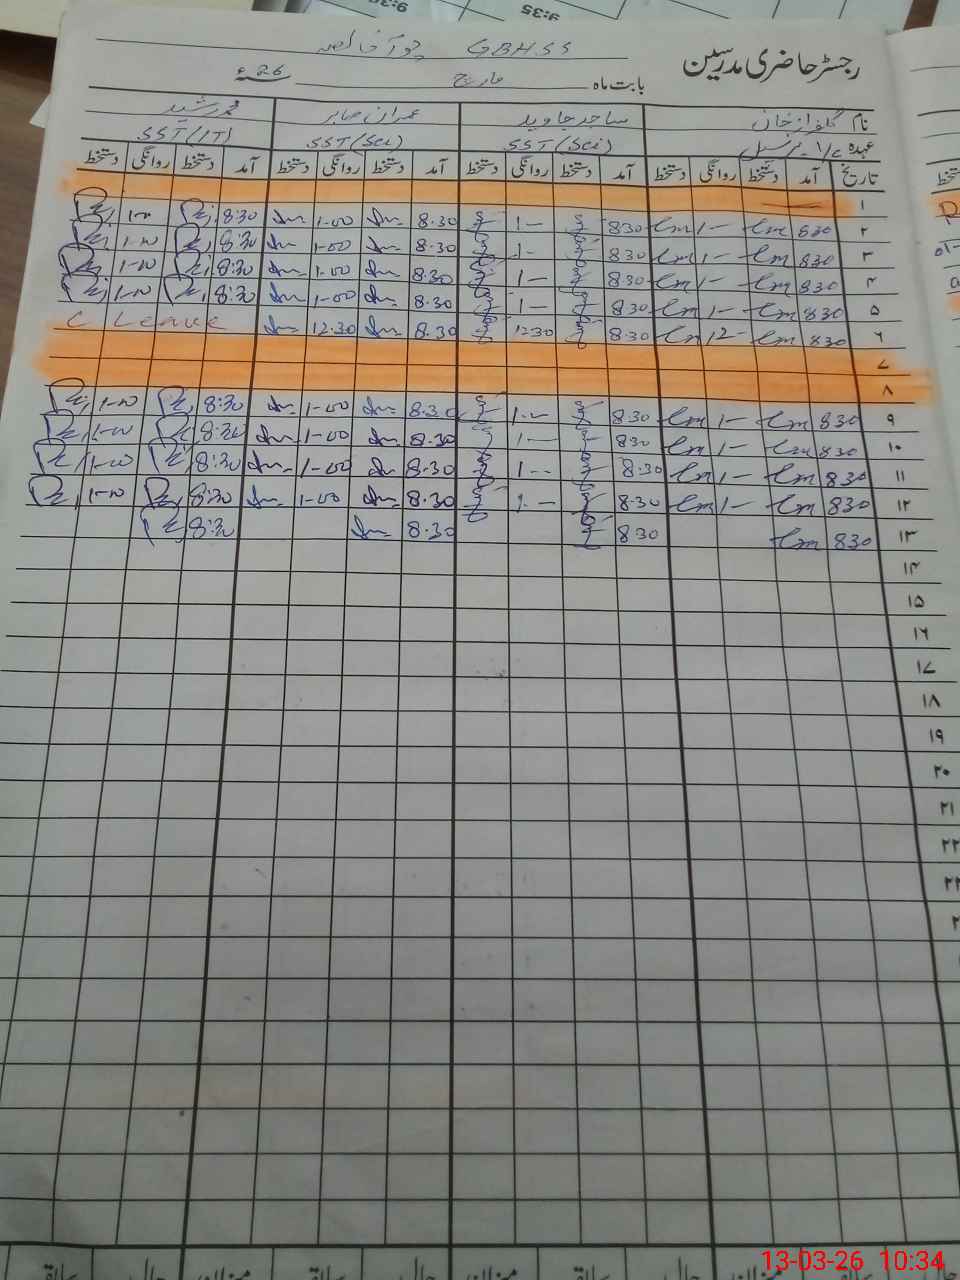 9:30
9:35
GBHSS چوآ خالصہ
رجسٹر حاضری مدرسین
بابت ماہ مارچ 26ء
نام گلفراز خان ساجد جاوید عمران صابر محمد رشید
عہدہ I/C پرنسپل SST(Sci) SST(Sci) SST(IT)
تاریخ آمد دستخط روانگی دستخط آمد دستخط روانگی دستخط آمد دستخط روانگی دستخط آمد دستخط روانگی دستخط
۱
۲ 830 1- 8.30 1- 8.30 1-00 8:30 1-00
۳ 830 1- 8.30 1- 8.30 1-00 8:30 1-00
۴ 830 1- 8.30 1- 8.30 1-00 8:30 1-00
۵ 830 1- 8.30 1- 8.30 1-00 8:30 1-00
۶ 830 12- 8.30 12.30 8.30 12.30 C Leave
۷
۸
۹ 830 1- 8.30 1-- 8.30 1-00 8:30 1-00
۱۰ 830 1- 8.30 1-- 8.30 1-00 8:30 1-00
۱۱ 830 1- 8.30 1-- 8.30 1-00 8:30 1-00
۱۲ 830 1- 8.30 1-- 8.30 1-00 8:30 1-00
۱۳ 830 8.30 8.30 8:30
۱۴
۱۵
۱۶
۱۷
۱۸
۱۹
۲۰
۲۱
۲۲
۲۳
13-03-26 10:34